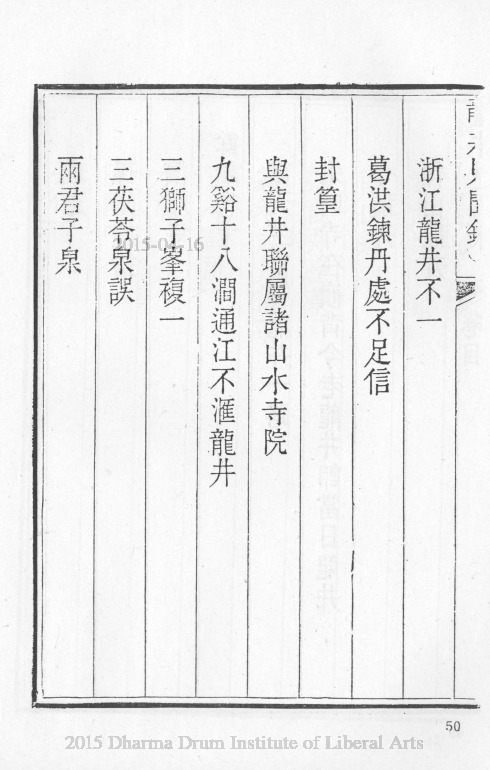 浙江龍井不一
葛洪鍊丹處不足信
封篁
與龍井聯屬諸山水寺院
九谿十八澗通江不滙龍井
三獅子峯複一
三茯苓泉誤
兩君子泉
50
2015-04-16
2015 Dharma Drum Institute of Liberal Arts